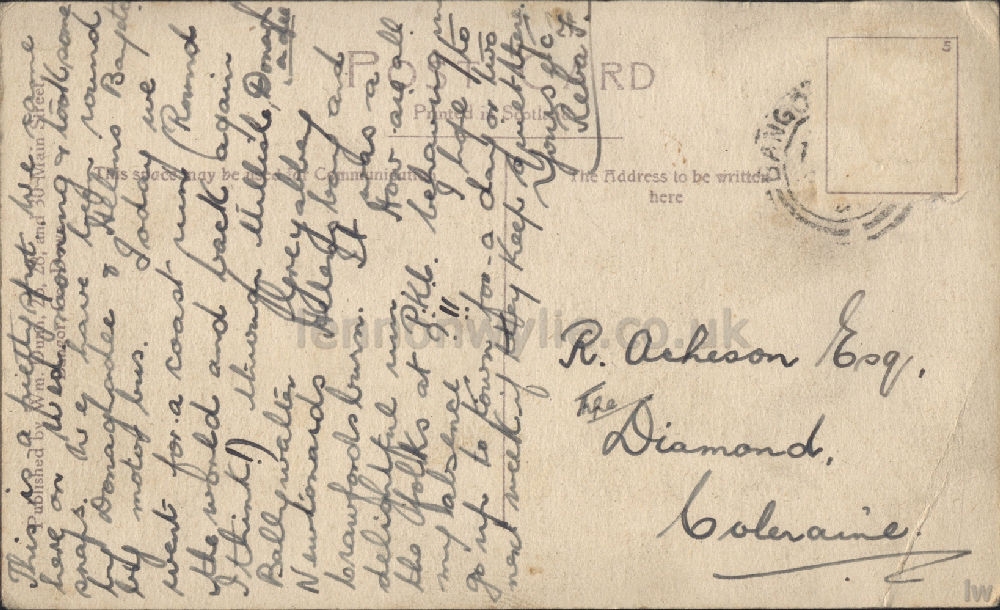 POST CARD
Printed in Scotland
This space may be used for Communication
The Address to be written
here
5
BANGOR
Published by Wm. Dunn, 26, 28, and 30 Main Street,
Bangor, Co. Down.
This is a pretty spot. We came
here on Wed. morning & took some
snaps. We have been round
by Donaghadee & Helens Bay to
by motor bus. Today we
went for a coast run (Round
the world and back again
I think!) through Millisle, Donagh
adee
Ballywalter Greyabbey
Newtownards Holey and
Crawfordsburn. It was a
delightful run. How are all
the folks at P.K.l. behaving in
my absence!! I hope to
go up to town for a day or two
next week if they keep quiet there.
Yours etc
Reba F.
R. Acheson Esq,
The
Diamond,
Coleraine.
lennonwylie.co.uk
lw